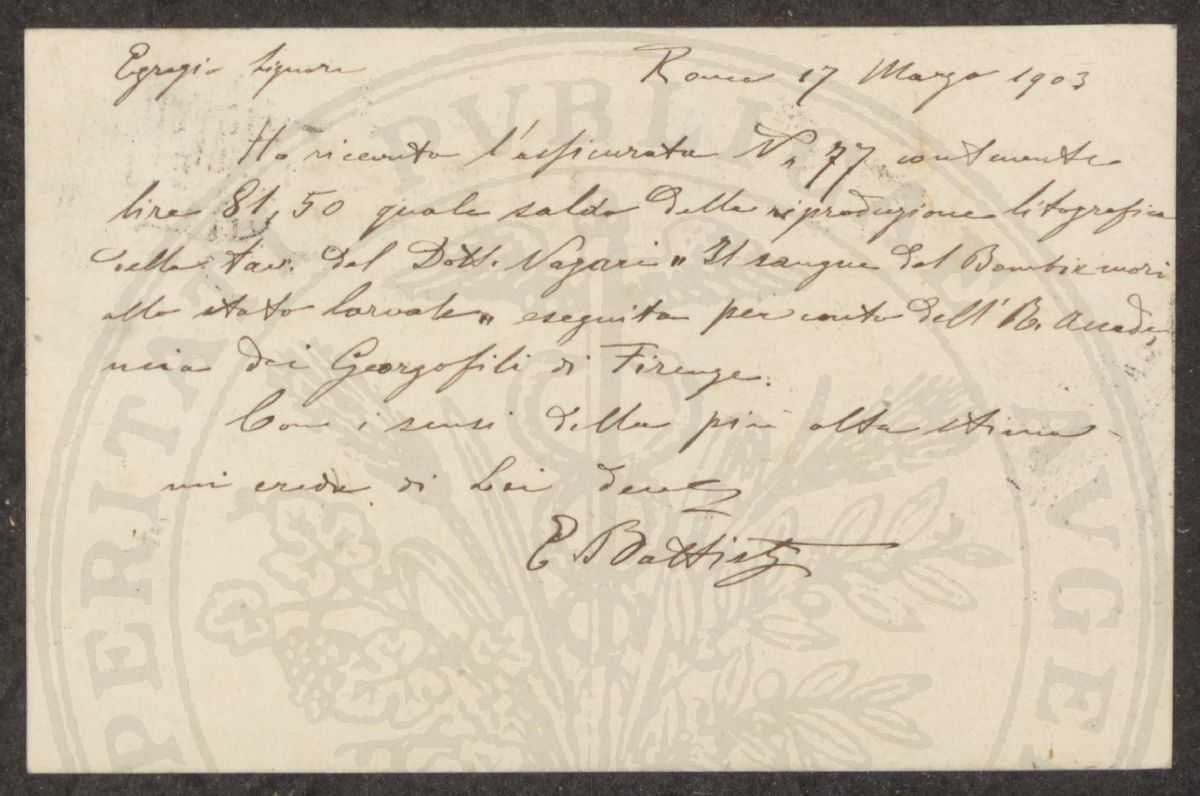 Egregio Signore Roma 17 Marzo 1903
Ho ricevuto l'assicurata N. 77 contenente
lire 81,50 quale saldo della riproduzione litografica
delle tav. del Dott. „Il sangue del Bombix mori
allo stato larvale„ eseguita per conto dell'R. Accade
mia dei Georgofili di Firenze.
Con i sensi della più alta stima
mi creda di Lei
E Battist
PROSPERITATI PUBLICAE AUGENDAE